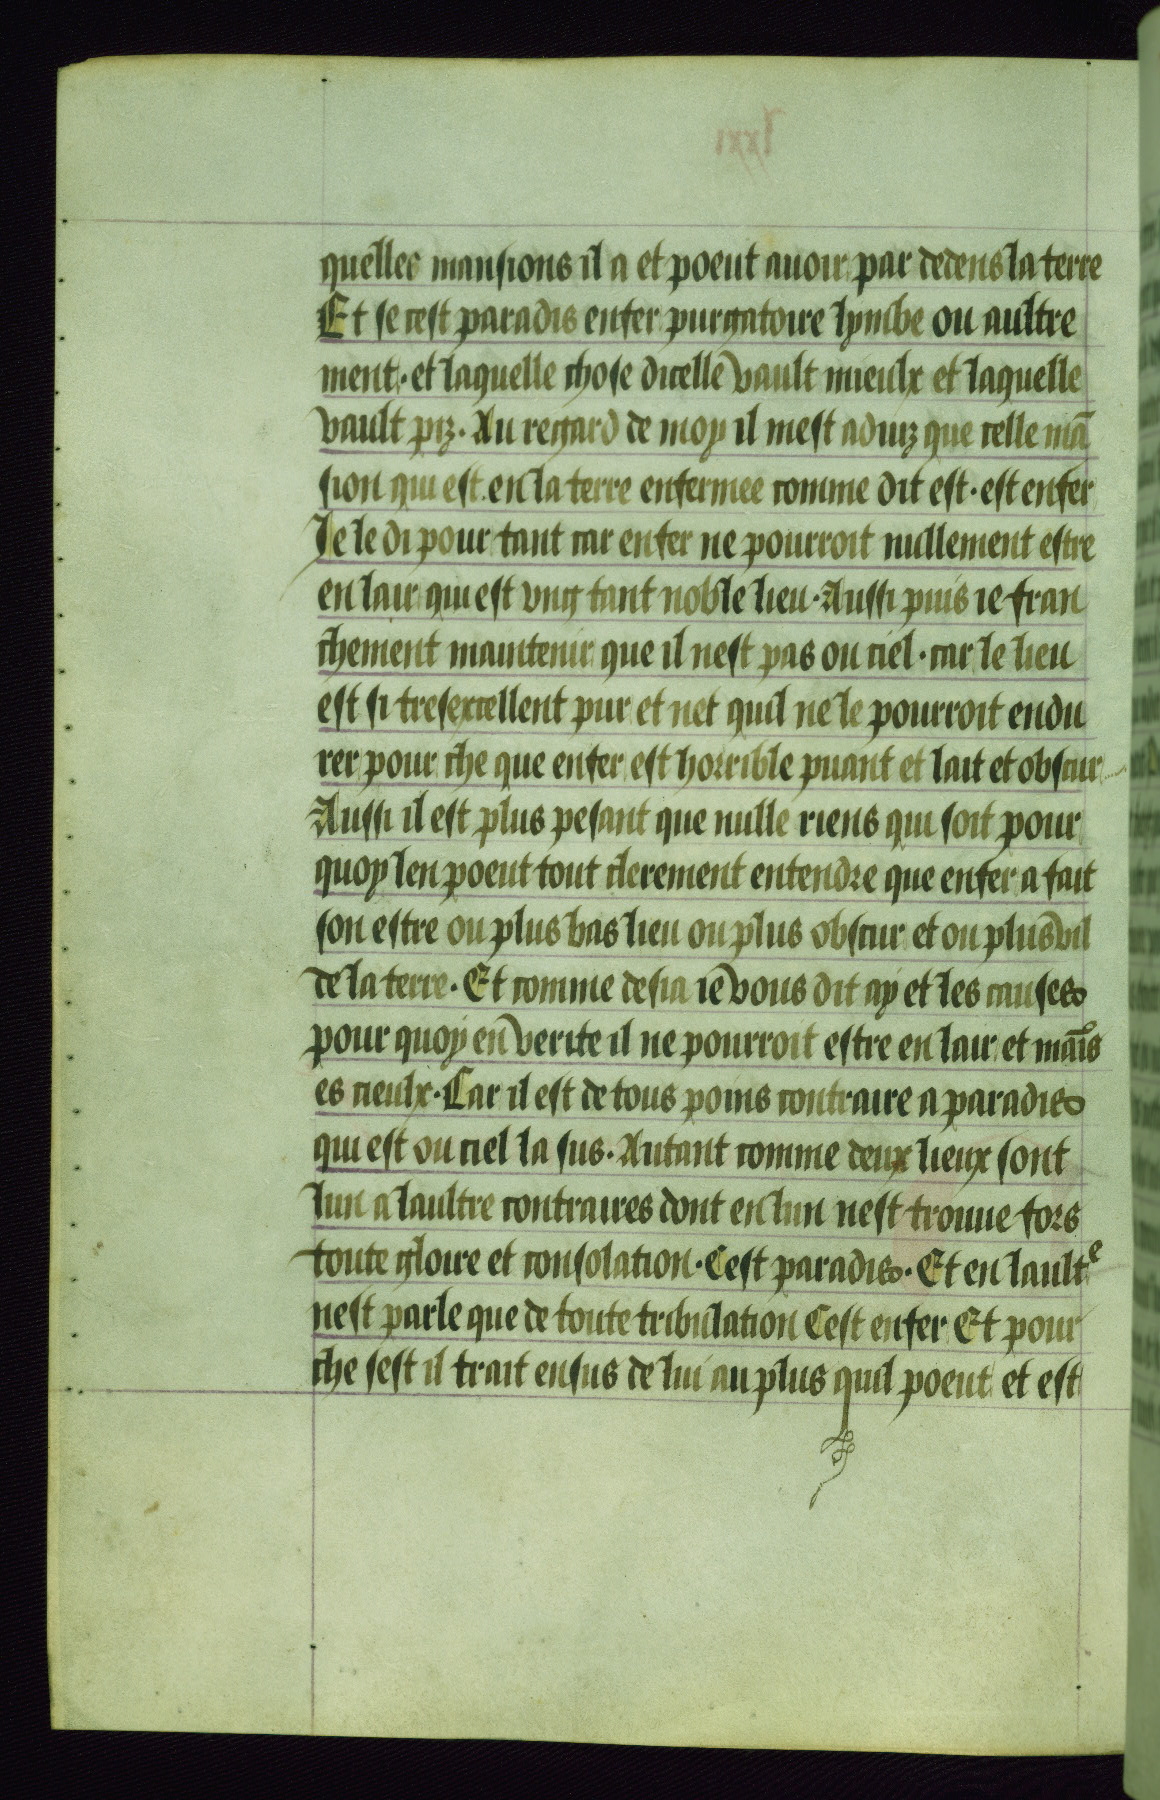 quelles mansions il a et poeut auoir par dedens la terre
Et se cest paradis enfer purgatoire lymbe ou aultre
ment · et laquelle chose dicelle vault mieulx et laquelle
vault piz · Au regard de moy il mest aduiz que celle mã
sion qui est en la terre enfermee comme dit est · est enfer
Je le di pour tant car enfer ne pourroit nullement estre
en lair qui est vng tant noble lieu · Aussi puis ie fran
chement maintenir que il nest pas ou ciel · car le lieu
est si tresexcellent pur et net quil ne le pourroit endu
rer pour che que enfer est horrible puant et lait et obscur
Aussi il est plus pesant que nulle riens qui soit pour
quoy len poeut tout clerement entendre que enfer a fait
son estre ou plus bas lieu ou plus obscur et ou plus vil
de la terre · Et comme desia ie vous dit ay et les causes
pour quoy en verite il ne pourroit estre en lair et mãis
es cieulx · Car il est de tous poins contraire a paradis
qui est ou ciel la sus · Autant comme deux lieux sont
lun a laultre contraires dont en lun nest trouue fors
toute gloire et consolation · Cest paradis · Et en laultᵉ
nest parle que de toute tribulation Cest enfer Et pour
che sest il trait ensus de lui au plus quil poeut et est